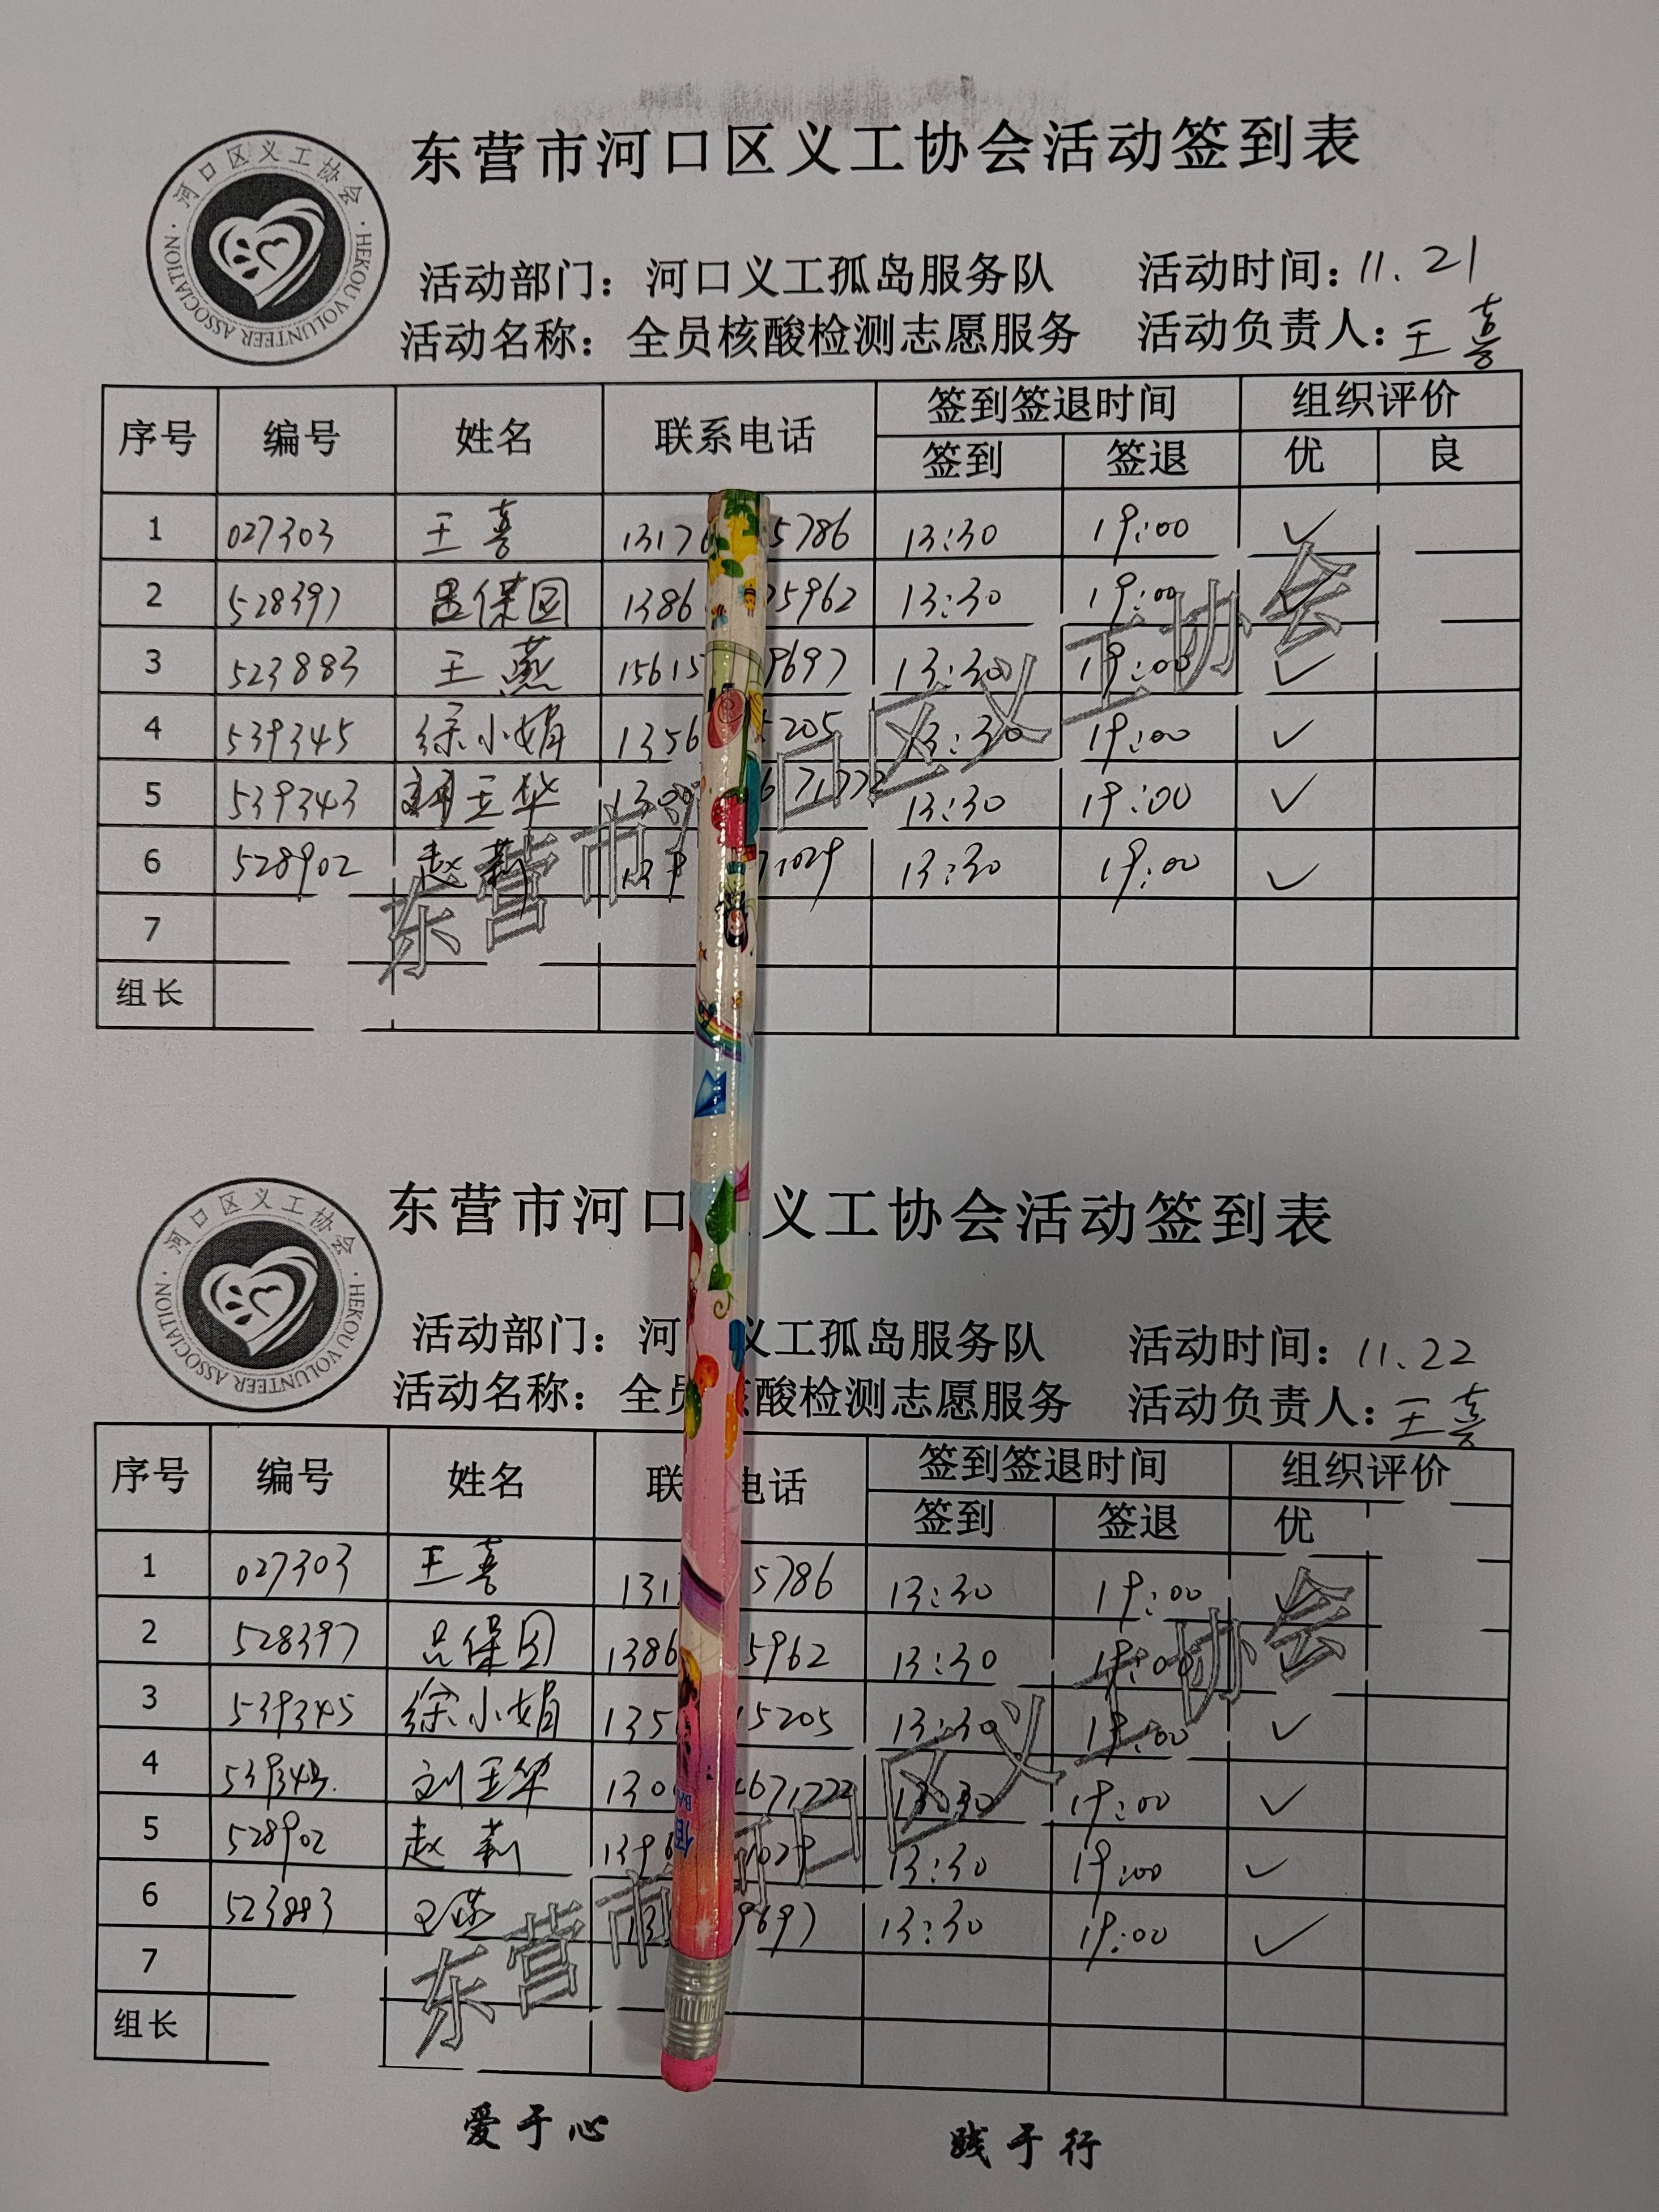 东营市河口区义工协会活动签到表
河口区义工协会
HEKOU VOLUNTEER ASSOCIATION
活动部门：河口义工孤岛服务队 活动时间：11.21
活动名称：全员核酸检测志愿服务 活动负责人：王喜
序号 编号 姓名 联系电话 签到签退时间 组织评价
签到 签退 优 良
1 027303 王喜 1317 5786 13:30 19:00 ✓
2 528397 吕保国 1386 5962 13:30 19:00 ✓
3 523883 王燕 15615 9697 13:30 19:00 ✓
4 539345 徐小娟 1356 205 13:30 19:00 ✓
5 539343 玉华 130 671772 13:30 19:00 ✓
6 528902 赵莉 139 1029 13:30 19:00 ✓
7
组长
东营市河口区义工协会
东营市河口 义工协会活动签到表
河口区义工协会
HEKOU VOLUNTEER ASSOCIATION
活动部门：河 义工孤岛服务队 活动时间：11.22
活动名称：全员核酸检测志愿服务 活动负责人：王喜
序号 编号 姓名 联 电话 签到签退时间 组织评价
签到 签退 优
1 027303 王喜 131 5786 13:30 19:00 ✓
2 528397 吕保国 1386 5962 13:30 19:00
3 539345 徐小娟 135 15205 13:30 19:00 ✓
4 539343 刘玉华 130 671772 13:30 19:00 ✓
5 528902 赵莉 1396 1029 13:30 19:00 ✓
6 523883 王燕 9697 13:30 19:00 ✓
7
组长
东营市河口区义工协会
爱于心 践于行